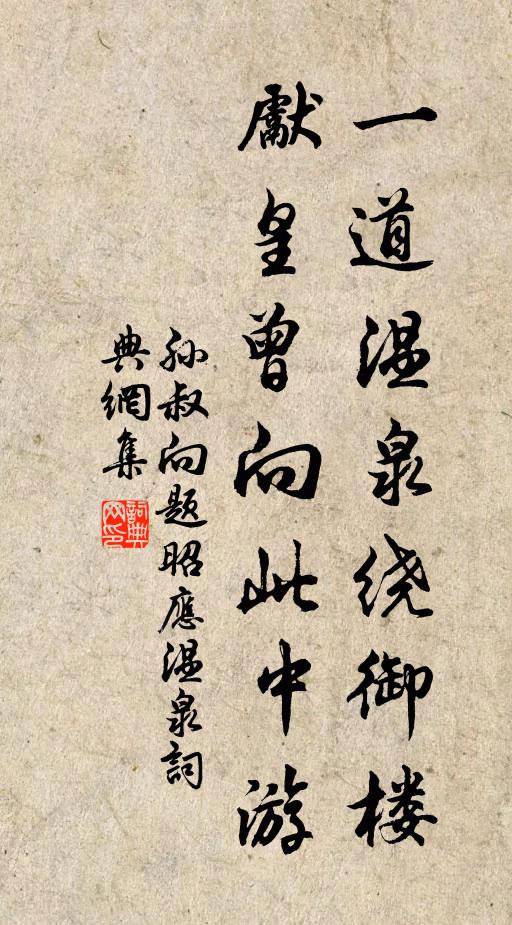 一道温泉绕御楼
獻皇曾向此中游
孙叔向题昭應温泉詞
典網集
詞典网印